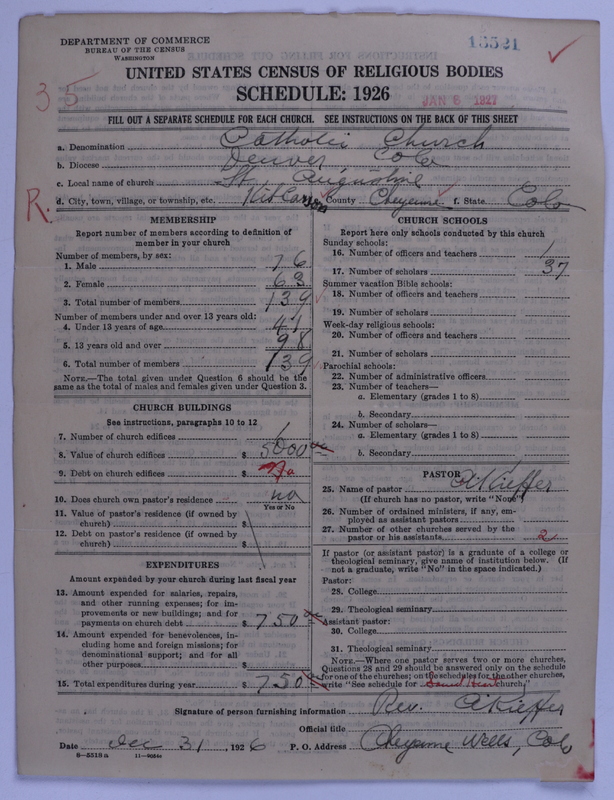 DEPARTMENT OF COMMERCE
BUREAU OF THE CENSUS
WASHINGTON
15521
UNITED STATES CENSUS OF RELIGIOUS BODIES
SCHEDULE: 1926
35
JAN 6 1927
FILL OUT A SEPARATE SCHEDULE FOR EACH CHURCH. SEE INSTRUCTIONS ON THE BACK OF THIS SHEET
a. Denomination Catholic Church
b. Diocese Denver, Colo
c. Local name of church St. Augustine
R.
d. City, town, village, or township, etc. Kit Carson County Cheyenne f. State Colo
MEMBERSHIP
Report number of members according to definition of
member in your church
Number of members, by sex:
1. Male 76
2. Female 63
3. Total number of members 139
Number of members under and over 13 years old:
4. Under 13 years of age 41
5. 13 years old and over 98
6. Total number of members 139
NOTE.—The total given under Question 6 should be the
same as the total of males and females given under Question 3.
CHURCH BUILDINGS
See instructions, paragraphs 10 to 12
7. Number of church edifices 1
8. Value of church edifices $ 5000
9. Debt on church edifices $
10. Does church own pastor's residence no
Yes or No
11. Value of pastor's residence (if owned by
church) $
12. Debt on pastor's residence (if owned by
church) $
EXPENDITURES
Amount expended by your church during last fiscal year
13. Amount expended for salaries, repairs,
and other running expenses; for im-
provements or new buildings; and for
payments on church debt $ 750
14. Amount expended for benevolences, in-
cluding home and foreign missions; for
denominational support; and for all
other purposes $
15. Total expenditures during year $ 750
CHURCH SCHOOLS
Report here only schools conducted by this church
Sunday schools:
16. Number of officers and teachers 1
17. Number of scholars 37
Summer vacation Bible schools:
18. Number of officers and teachers
19. Number of scholars
Week-day religious schools:
20. Number of officers and teachers
21. Number of scholars
Parochial schools:
22. Number of administrative officers
23. Number of teachers—
a. Elementary (grades 1 to 8)
b. Secondary
24. Number of scholars—
a. Elementary (grades 1 to 8)
b. Secondary
PASTOR
25. Name of pastor A Kieffer
(If church has no pastor, write "None")
26. Number of ordained ministers, if any, em-
ployed as assistant pastors
27. Number of other churches served by the
pastor or his assistants 2
If pastor (or assistant pastor) is a graduate of a college or
theological seminary, give name of institution below. (If
not a graduate, write "No" in the space indicated.)
Pastor:
28. College
29. Theological seminary
Assistant pastor:
30. College
31. Theological seminary
NOTE.—Where one pastor serves two or more churches,
Questions 28 and 29 should be answered only on the schedule
for one of the churches; on the schedules for the other churches,
write "See schedule for Sacred Heart church."
Signature of person furnishing information Rev. A Kieffer
Official title
Date Dec 31, 1926 P. O. Address Cheyenne Wells, Colo
8—5519a 11—9084